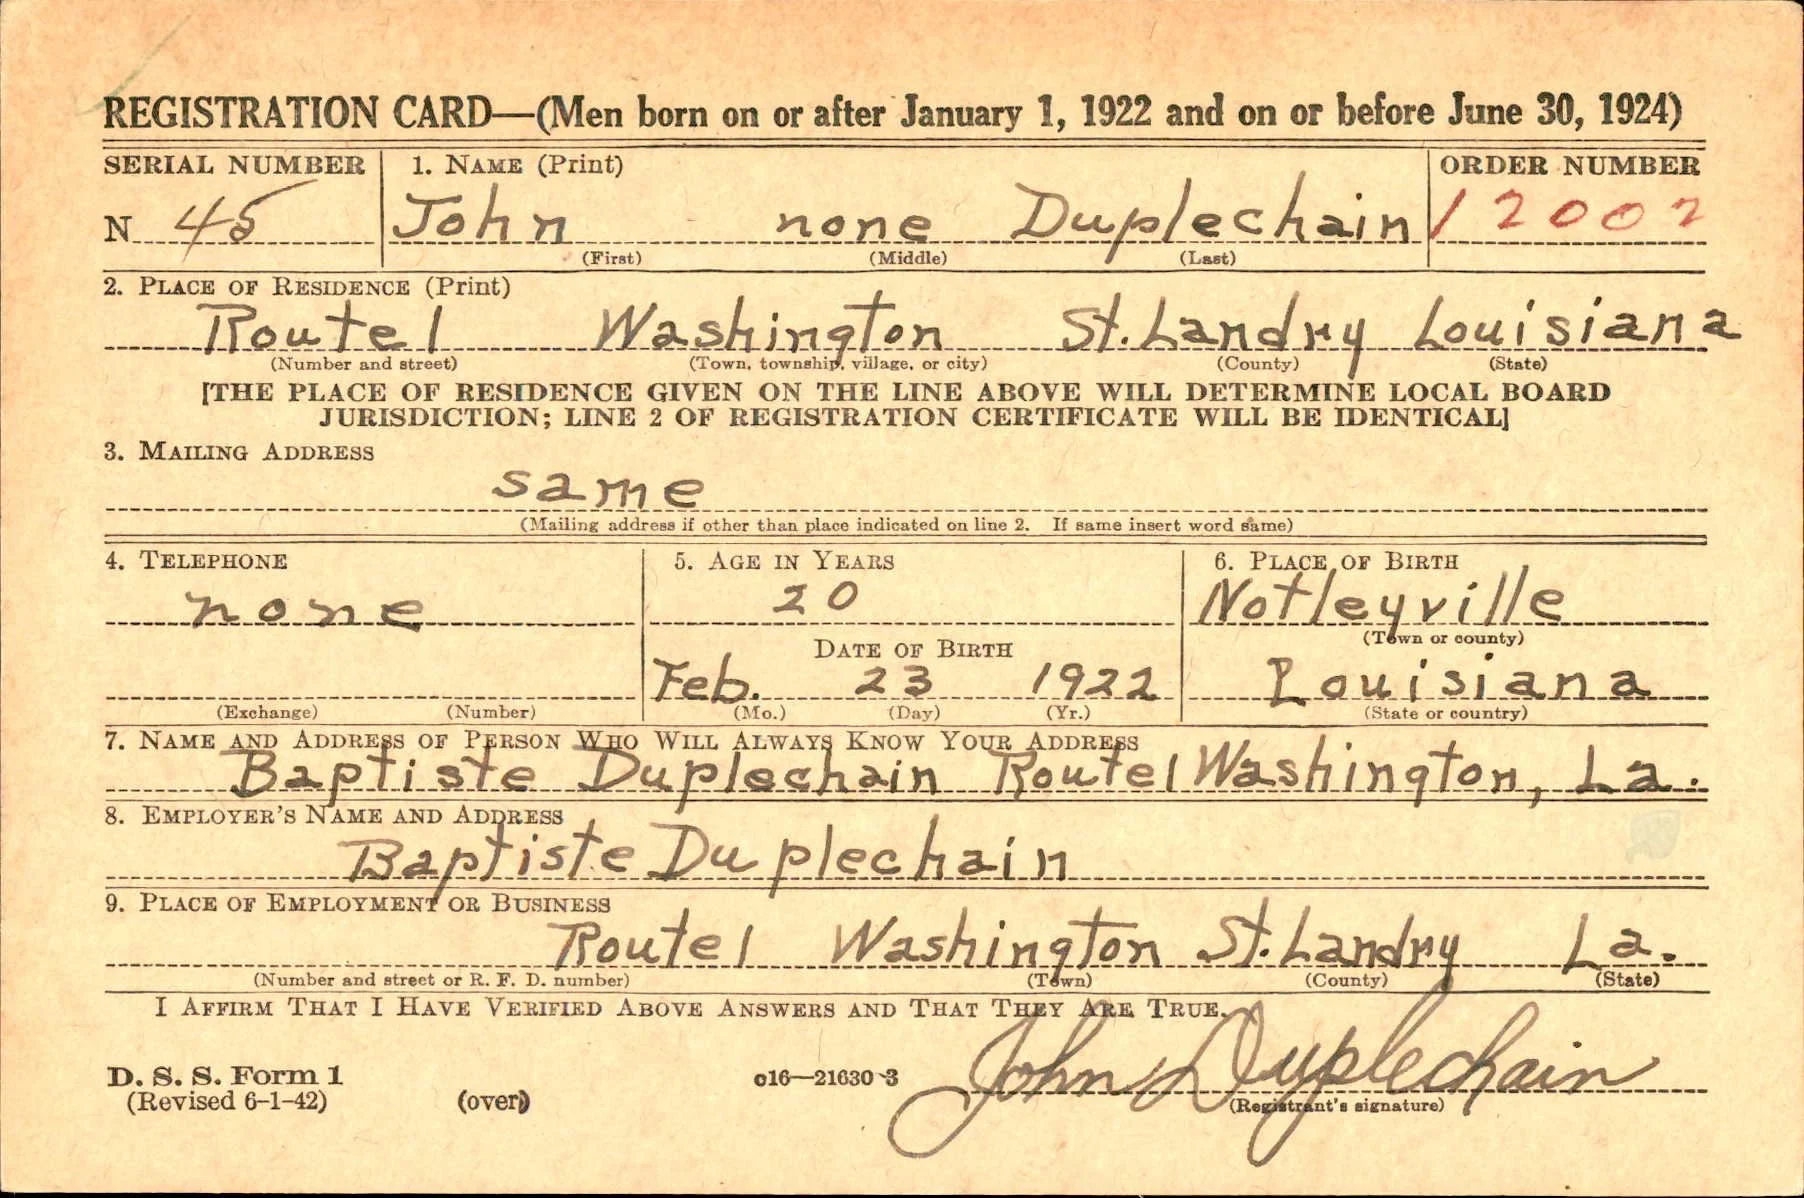 REGISTRATION CARD—(Men born on or after January 1, 1922 and on or before June 30, 1924)
SERIAL NUMBER 1. NAME (Print) ORDER NUMBER
N 45 John none Duplechain 12002
(First) (Middle) (Last)
2. PLACE OF RESIDENCE (Print)
Route 1 Washington St. Landry Louisiana
(Number and street) (Town, township, village, or city) (County) (State)
[THE PLACE OF RESIDENCE GIVEN ON THE LINE ABOVE WILL DETERMINE LOCAL BOARD
JURISDICTION; LINE 2 OF REGISTRATION CERTIFICATE WILL BE IDENTICAL]
3. MAILING ADDRESS
same
(Mailing address if other than place indicated on line 2. If same insert word same)
4. TELEPHONE 5. AGE IN YEARS 6. PLACE OF BIRTH
none 20 Notleyville
(Town or county)
DATE OF BIRTH
Feb. 23 1922 Louisiana
(Exchange) (Number) (Mo.) (Day) (Yr.) (State or country)
7. NAME AND ADDRESS OF PERSON WHO WILL ALWAYS KNOW YOUR ADDRESS
Baptiste Duplechain Route 1 Washington, La.
8. EMPLOYER'S NAME AND ADDRESS
Baptiste Duplechain
9. PLACE OF EMPLOYMENT OR BUSINESS
Route 1 Washington St. Landry La.
(Number and street or R. F. D. number) (Town) (County) (State)
I AFFIRM THAT I HAVE VERIFIED ABOVE ANSWERS AND THAT THEY ARE TRUE.
John Duplechain
D. S. S. Form 1 c16—21630-3
(Revised 6-1-42) (over) (Registrant's signature)